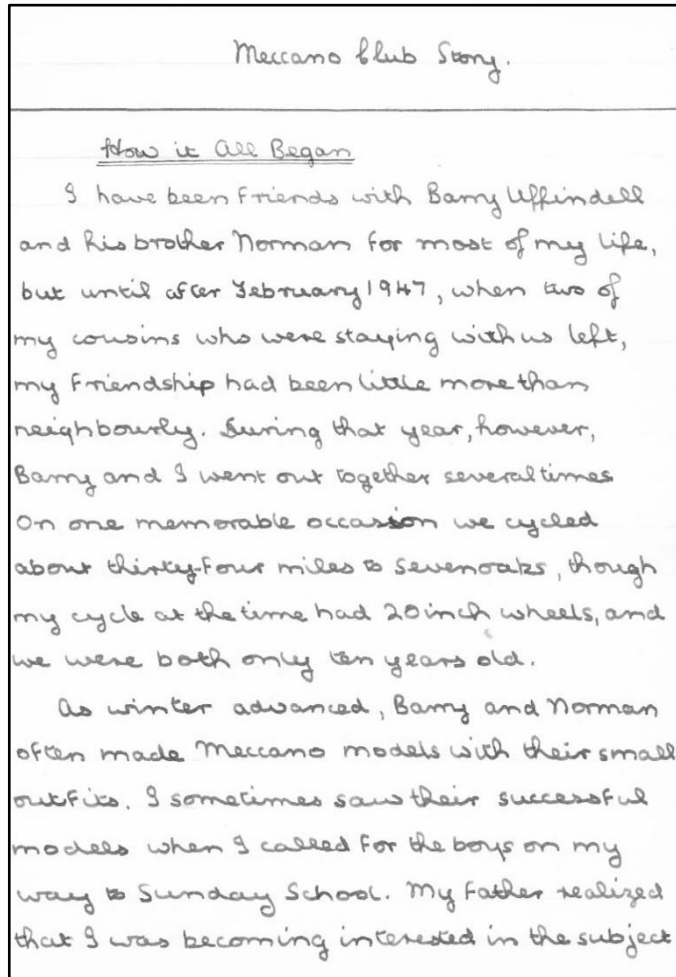 Meccano Club Story.
How it All Began
I have been friends with Barry Uffindell
and his brother Norman for most of my life,
but until after February 1947, when two of
my cousins who were staying with us left,
my friendship had been little more than
neighbourly. During that year, however,
Barry and I went out together several times
On one memorable occasion we cycled
about thirty-four miles to Sevenoaks, though
my cycle at the time had 20 inch wheels, and
we were both only ten years old.
As winter advanced, Barry and Norman
often made Meccano models with their small
outfits. I sometimes saw their successful
models when I called for the boys on my
way to Sunday School. My Father realized
that I was becoming interested in the subject